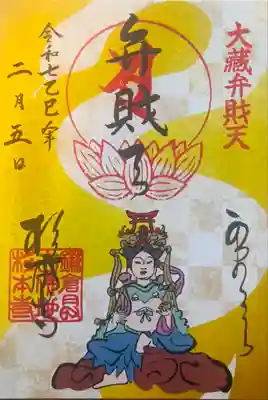 大藏弁財天
弁財天
令和七乙巳年
二月五日
杉本寺